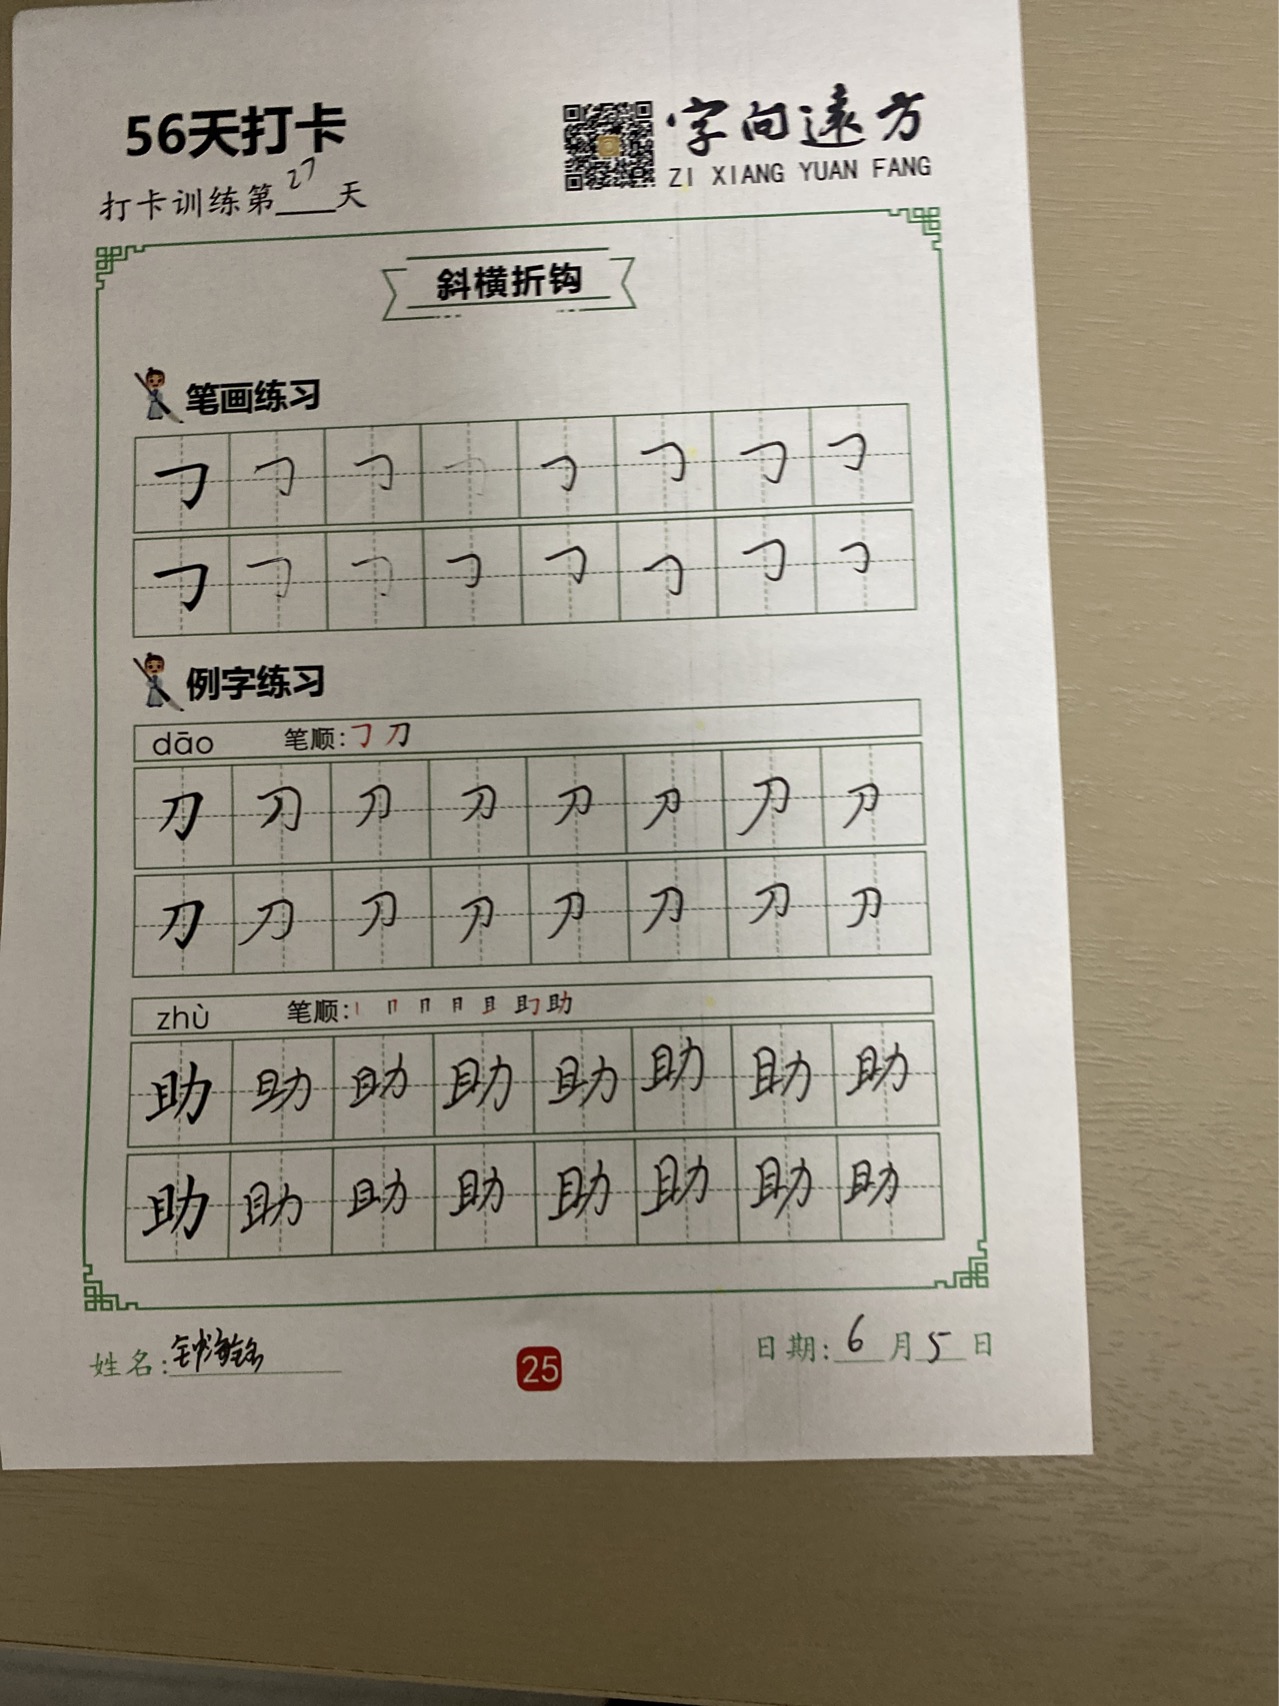 56天打卡
字向遠方
ZI XIANG YUAN FANG
打卡训练第27天
斜横折钩
笔画练习
例字练习
dāo 笔顺:㇆ 刀
刀 刀 刀 刀 刀 刀 刀 刀
刀 刀 刀 刀 刀 刀 刀 刀
zhù 笔顺:丨 冂 冂 月 且 助 助
助 助 助 助 助 助 助 助
助 助 助 助 助 助 助 助
姓名:
25
日期:6月5日